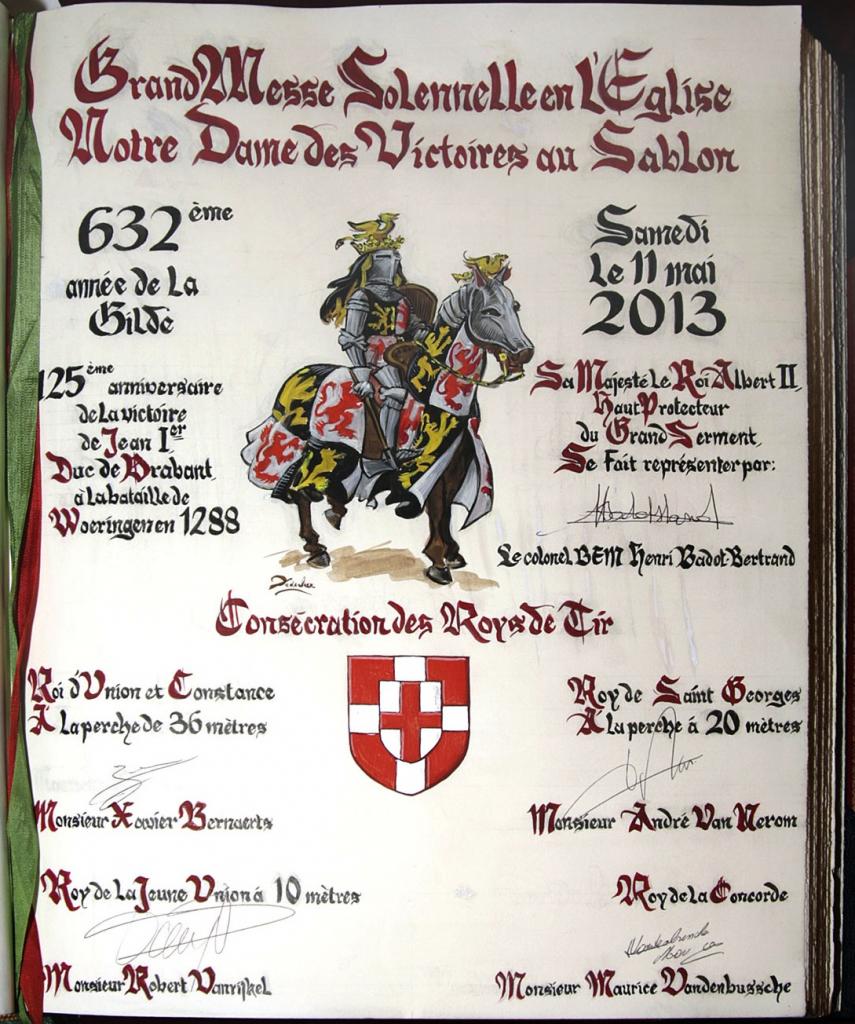 Grand Messe Solennelle en L'Eglise
Notre Dame des Victoires au Sablon
632ème
année de La
Gilde
Samedi
Le 11 mai
2013
125ème anniversaire
de La victoire
de Jean Ier
Duc de Brabant
à La bataille de
Woeringen en 1288
Sa Majesté Le Roi Albert II,
Haut Protecteur
du Grand Serment,
Se Fait représenter par:
Le colonel BEM Henri Badot-Bertrand
Consécration des Roys de Tir
Roi d'Union et Constance
À La perche de 36 mètres
Monsieur Xavier Bernaerts
Roy de Saint Georges
À La perche à 20 mètres
Monsieur André Van Nerom
Roy de La Jeune Union à 10 mètres
Monsieur Robert Vanriskel
Roy de La Concorde
Monsieur Maurice Vandenbussche